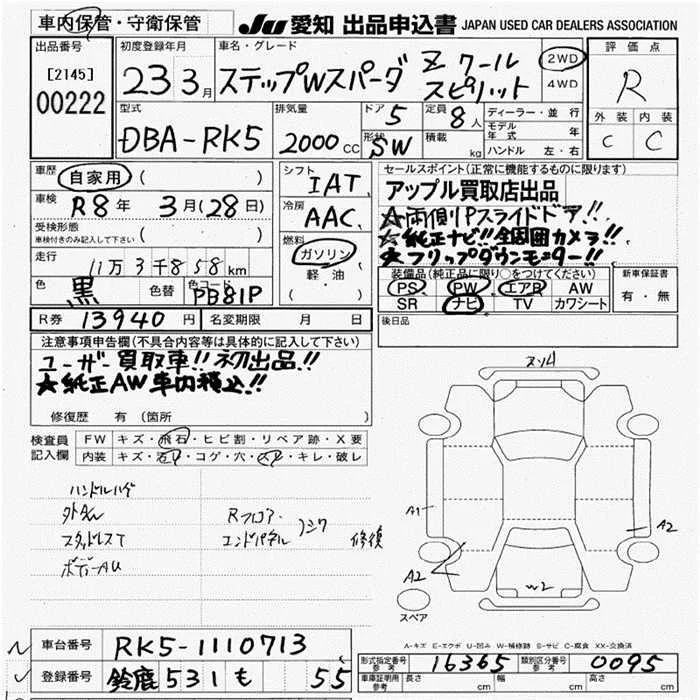 車内保管・守衛保管
JU 愛知 出品申込書 JAPAN USED CAR DEALERS ASSOCIATION
出品番号
[2145]
00222
初度登録年月
23 3月
車名・グレード
ステップWスパーダ Z クール
スピリット
2WD
4WD
評価点
R
外装 内装
C C
型式
DBA-RK5
排気量
2000 CC
ドア 5
形状 SW
定員 8人
積載 kg
ディーラー・並行
モデル年式 年
ハンドル 左・右
車歴 自家用 ( )
車検 R8年 3月(28日)
受検形態
車検付きのみ記入して下さい ( )
走行 11万3千858km
色 黒 色替 色コード PB81P
シフト IAT
冷房 AAC
燃料
ガソリン
軽・油
( )
セールスポイント(正常に機能するものに限ります)
アップル買取店出品
☆両側Pスライドドア!!
★純正ナビ!!全周囲カメラ!!
★フリップダウンモニター!!
装備品(純正品に限り○をつけてください)
PS PW エアB AW
SR ナビ TV カワシート
新車保証書
有・無
R券 13940円 名変期限 月 日
後日品
注意事項申告欄(不具合内容等は具体的に記入して下さい)
ユーザー買取車!!初出品!!
★純正AW車内積込!!
修復歴 有 (箇所 )
検査員記入欄
FW キズ・飛石・ヒビ割・リペア跡・X要
内装 キズ・汚レ・コゲ・穴・スレ・キレ・破レ
ハンドルハゲ
スタッドレスT
ボデーAU
Rフロアー
エンドパネル
シワ
修復
A1
A2
A2
W2
スペア
A-キズ E-エクボ U-凹み W-補修跡 S-サビ C-腐食 XX-交換済
車台番号 RK5-1110713
登録番号 鈴鹿 531 も 55
型式指定番号 参考 16365 類別区分番号 参考 0095
車庫証明用 参考 長さ cm 幅 cm 高さ cm